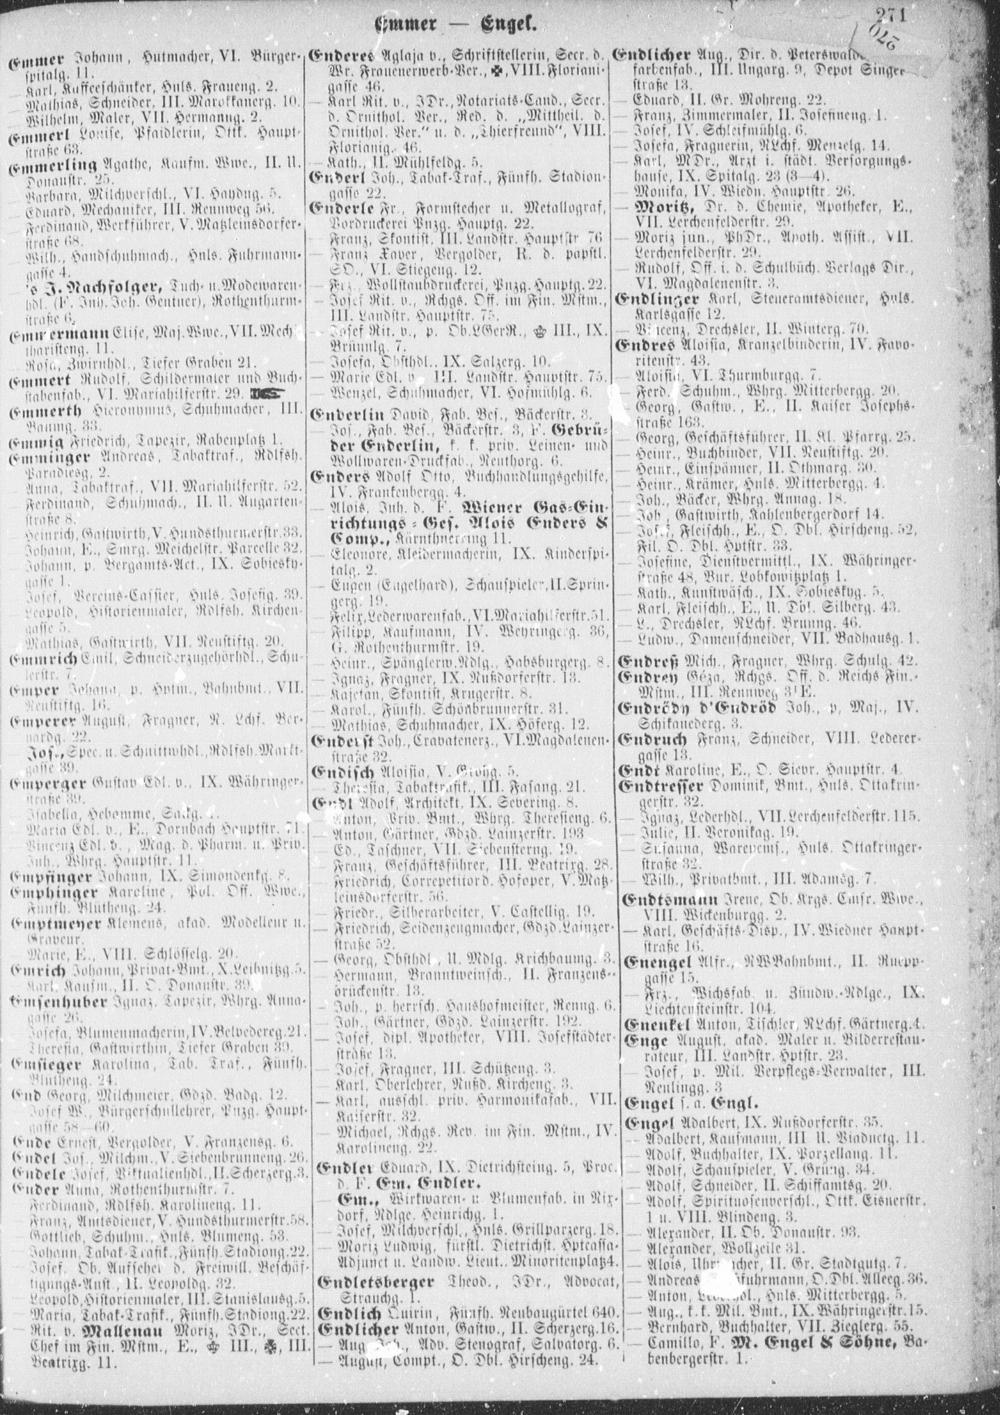 271
270
Emmer — Engel.
Emmer Johann, Hutmacher, VI. Bürger-
spitalg. 11.
— Karl, Kaffeeschänker, Hnls. Fraueng. 2.
— Mathias, Schneider, III. Marokkanerg. 10.
— Wilhelm, Maler, VII. Hermanng. 2.
Emmerl Louise, Pfaidlerin, Ottk. Haupt-
straße 63.
Emmerling Agathe, Kaufm. Wwe., II. U.
Donaustr. 25.
— Barbara, Milchverschl., VI. Haydng. 5.
— Eduard, Mechaniker, III. Rennweg 56.
— Ferdinand, Werkführer, V. Matzleinsdorfer-
straße 68.
— Wilh., Handschuhmach., Hnls. Fuhrmann-
gasse 4.
— 's J. Nachfolger, Tuch- u. Modewaren-
hdl. (F. Inh. Joh. Gentner), Rothenthurm-
straße 6.
Emmermann Elise, Maj. Wwe., VII. Mech-
tharisteng. 11.
— Rosa, Zwirnhdl., Tiefer Graben 21.
Emmert Rudolf, Schildermaler und Buch-
stabenfab., VI. Mariahilferstr. 29.
Emmerth Hieronymus, Schuhmacher, III.
Baumg. 33.
Emmig Friedrich, Tapezir, Rabenplatz 1.
Emminger Andreas, Tabaktraf., Rdlfsh.
Paradiesg. 2.
— Anna, Tabaktraf., VII. Mariahilferstr. 52.
— Ferdinand, Schuhmach., II. U. Augarten-
straße 8.
— Heinrich, Gastwirth, V. Hundsthurmerstr. 33.
— Johann, E., Smrg. Meichelstr. Parcelle 32.
— Johann, p. Bergamts-Act., IX. Sobiesky-
gasse 1.
— Josef, Vereins-Cassier, Hnls. Josefig. 39.
— Leopold, Historienmaler, Rdlfsh. Kirchen-
gasse 5.
— Mathias, Gastwirth, VII. Neustiftg. 20.
Emmrich Emil, Schneiderzugehörhdl., Schu-
lerstr. 7.
Emper Johann, p. Hptm., Bahnbmt., VII.
Neustiftg. 16.
Emperer August, Fragner, N. Lchf. Ber-
nardg. 22.
— Jos., Spec. u. Schnittwhdl., Rdlfsh. Markt-
gasse 39.
Emperger Gustav Edl. v., IX. Währinger-
straße 39.
— Isabella, Hebomme,
— Maria Edl. v., E., Dornbach Hauptstr. 71.
— Vincenz Edl. v., Mag. d. Pharm. u. Priv.
Inh., Whrg. Hauptstr. 11.
Empfinger Johann, IX. Simondenkg. 8.
Emphinger Karoline, Pol. Off. Wwe.,
Fünfh. Blütheng. 24.
Emptmeyer Klemens, akad. Modelleur u.
Graveur.
— Marie, E., VIII. Schlösselg. 20.
Emrich Johann, Privat-Bmt., X. Leibnitzg. 5.
— Karl, Kaufm., II. O. Donaustr. 39.
Emsenhuber Ignaz, Tapezir, Whrg. Anna-
gasse 26.
— Josefa, Blumenmacherin, IV. Belvedereg. 21.
— Theresia, Gastwirthin, Tiefer Graben 39.
Emsieger Karolina, Tab. Traf., Fünfh.
Blütheng. 24.
End Georg, Milchmeier, Gdzd. Badg. 12.
— Josef W., Bürgerschullehrer, Pnzg. Haupt-
gasse 58—60.
Ende Ernest, Vergolder, V. Franzensg. 6.
Endel Jos., Milchm., V. Siebenbrunneng. 26.
Endele Josef, Viktualienhdl., II. Scherzerg. 3.
Ender Anna, Rothenthurmstr. 7.
— Ferdinand, Rdlfsh. Karolineng. 11.
— Franz, Amtsdiener, V. Hundsthurmerstr. 58.
— Gottlieb, Schuhm., Hnls. Blumeng. 53.
— Johann, Tabak-Trafik., Fünfh. Stadiong. 22.
— Josef, Ob. Aufseher d. Freiwill. Beschäf-
tigungs-Anst., II. Leopoldg. 32.
— Leopold, Historienmaler, III. Stanislausg. 5.
— Maria, Tabak-Trafik., Fünfh. Stadiong. 22.
— Rit. v. Mallenau Moriz, JDr., Sect.
Chef im Fin. Mstm., E., III., III.
Beatrixg. 11.
Enderes Aglaja v., Schriftstellerin, Secr. d.
Wr. Frauenerwerb-Ver., VIII. Floriani-
gasse 46.
— Karl Rit. v., JDr., Notariats-Cand., Secr.
d. Ornithol. Ver., Red. d. „Mittheil. d.
Ornithol. Ver." u. d. „Thierfreund", VIII.
Florianig. 46.
— Kath., II. Mühlfeldg. 5.
Enderl Joh., Tabak-Traf., Fünfh. Stadion-
gasse 22.
Enderle Fr., Formstecher u. Metallograf,
Vordruckerei Pnzg. Hauptg. 22.
— Franz, Skontist, III. Landstr. Hauptstr 76
— Franz Xaver, Vergolder, R. d. päpstl.
SO., VI. Stiegeng. 12.
— Frz., Wollstaubdruckerei, Pnzg. Hauptg. 22.
— Josef Rit. v., Rchgs. Off. im Fin. Mstm.,
III. Landstr. Hauptstr. 75.
— Josef Rit. v., p. Ob. LGerR., III., IX.
Brünnlg. 7.
— Josefa, Obsthdl., IX. Salzerg. 10.
— Marie Edl. v., III. Landstr. Hauptstr. 75.
— Wenzel, Schuhmacher, VI. Hofmühlg. 6.
Enderlin David, Fab. Bes., Bäckerstr. 3.
— Jos., Fab. Bes., Bäckerstr. 3, F. Gebrü-
der Enderlin, k. k. priv. Leinen- und
Wollwaren-Druckfab., Neuthorg. 6.
Enders Adolf Otto, Buchhandlungsgehilfe,
IV. Frankenbergg. 4.
— Alois, Inh. d. F. Wiener Gas-Ein-
richtungs-Ges. Alois Enders &
Comp., Kärnthnerring 11.
— Eleonore, Kleidermacherin, IX. Kinderspi-
talg. 2.
— Eugen (Engelhard), Schauspieler, II. Sprin-
gerg. 19.
— Felix, Lederwarenfab., VI. Mariahilferstr. 51.
— Filipp, Kaufmann, IV. Weyringerg. 36,
G. Rothenthurmstr. 19.
— Heinr., Spänglerw. Ndlg., Habsburgerg. 8.
— Ignaz, Fragner, IX. Nußdorferstr. 13.
— Kajetan, Skontist, Krugerstr. 8.
— Karol., Fünfh. Schönbrunnerstr. 31.
— Mathias, Schuhmacher, IX. Höferg. 12.
Enderst Joh., Cravatenerz., VI. Magdalenen-
straße 32.
Endisch Aloisia, V. Grohg. 5.
— Theresia, Tabaktrafik., III. Fasang. 21.
Endl Adolf, Architekt, IX. Severing. 8.
— Anton, Priv. Bmt., Whrg. Theresieng. 6.
— Anton, Gärtner, Gdzd. Lainzerstr. 193
— Ed., Taschner, VII. Siebensterng. 19.
— Franz, Geschäftsführer, III. Beatrixg. 28.
— Friedrich, Correpetitor d. Hofoper, V. Matz-
leinsdorferstr. 56.
— Friedr., Silberarbeiter, V. Castellig. 19.
— Friedrich, Seidenzeugmacher, Gdzd. Lainzer-
straße 52.
— Georg, Obsthdl., U. Mdlg. Krichbaumg. 3.
— Hermann, Branntweinsch., II. Franzens-
brückenstr. 13.
— Joh., p. herrsch. Haushofmeister, Renng. 6.
— Joh., Gärtner, Gdzd. Lainzerstr. 192.
— Josef, dipl. Apotheker, VIII. Josefstädter-
straße 13.
— Josef, Fragner, III. Schützeng. 3.
— Karl, Oberlehrer, Nußd. Kircheng. 3.
— Karl, ausschl. priv. Harmonikafab., VII.
Kaiserstr. 32.
— Michael, Rchgs. Rev. im Fin. Mstm., IV.
Karolineng. 22.
Endler Eduard, IX. Dietrichsteing. 5, Proc.
d. F. Em. Endler.
— Em., Wirkwaren- u. Blumenfab. in Nix-
dorf, Ndlge. Heinrichg. 1.
— Josef, Milchverschl., Hnls. Grillparzerg. 18.
— Moriz Ludwig, fürstl. Dietrichst. Hptcassa-
Adjunct u. Landw. Lieut., Minoritenplatz 4.
Endletsberger Theod., JDr., Advocat,
Strauchg. 1.
Endlich Quirin, Fünfh. Neubaugürtel 640.
Endlicher Anton, Gastw., II. Scherzerg. 16.
— Aug. Joh., Adv. Stenograf, Salvatorg. 6.
— August, Compt., O. Dbl. Hirscheng. 24.
Endlicher Aug., Dir. d. Peterswald
farbenfab., III. Ungarg. 9, Depot Singer-
straße 13.
— Eduard, II. Gr. Mohreng. 22.
— Franz, Zimmermaler, II. Josefineng. 1.
— Josef, IV. Schleifmühlg. 6.
— Josefa, Fragnerin, NLchf. Menzelg. 14.
— Karl, MDr., Arzt i. städt. Versorgungs-
hause, IX. Spitalg. 23 (3—4).
— Monika, IV. Wiedn. Hauptstr. 26.
— Moritz, Dr. d. Chemie, Apotheker, E.,
VII. Lerchenfelderstr. 29.
— Moriz jun., PhDr., Apoth. Assist., VII.
Lerchenfelderstr. 29.
— Rudolf, Off. i. d. Schulbüch. Verlags Dir.,
VI. Magdalenenstr. 3.
Endlinger Karl, Steueramtsdiener, Hnls.
Karlsgasse 12.
— Vincenz, Drechsler, II. Winterg. 70.
Endres Aloisia, Kranzelbinderin, IV. Favo-
ritenstr. 43.
— Aloisia, VI. Thurmburgg. 7.
— Ferd. Schuhm., Whrg. Mitterbergg. 20.
— Georg, Gastw., E., II. Kaiser Josephs-
straße 163.
— Georg, Geschäftsführer, II. Kl. Pfarrg. 25.
— Heinr., Buchbinder, VII. Neustiftg. 20.
— Heinr., Einspänner, II. Othmarg. 30.
— Heinr., Krämer, Hnls. Mitterbergg. 4.
— Joh., Bäcker, Whrg. Annag. 18.
— Joh., Gastwirth, Kahlenbergerdorf 14.
— Josef, Fleischh., E., O. Dbl. Hirscheng. 52,
Fil. O. Dbl. Hptstr. 33.
— Josefine, Dienstvermittl., IX. Währinger-
straße 48, Bur. Lobkowitzplatz 1.
— Kath., Kunstwäsch., IX. Sobieskyg. 5.
— Karl, Fleischh., E., U. Döbl. Silberg. 43.
— L., Drechsler, NLchf. Brunng. 46.
— Ludw., Damenschneider, VII. Badhausg. 1.
Endreß Mich., Fragner, Whrg. Schulg. 42.
Endrey Géza, Rchgs. Off. d. Reichs Fin.-
Mstm., III. Rennweg 31E.
Endrödy d'Endröd Joh., p. Maj., IV.
Schikanederg. 3.
Endruch Franz, Schneider, VIII. Lederer-
gasse 13.
Endt Karoline, E., O. Sievr. Hauptstr. 4.
Endtresser Dominik, Bmt., Hnls. Ottakrin-
gerstr. 32.
— Ignaz, Lederhdl., VII. Lerchenfelderstr. 115.
— Julie, II. Veronikag. 19.
— Susanna, Warenerns., Hnls. Ottakringer-
straße 32.
— Wilh., Privatbmt., III. Adamsg. 7.
Endtsmann Irene, Ob. Krgs. Cmsr. Wwe.,
VIII. Wickenburgg. 2.
— Karl, Geschäfts-Disp., IV. Wiedner Haupt-
straße 16.
Enengel Alfr., NWBahnbmt., II. Ruepp-
gasse 15.
— Frz., Wichsfab. u. Zündw.-Ndlge., IX.
Liechtensteinstr. 104.
Enenkel Anton, Tischler, NLchf. Gärtnerg. 4.
Enge August, akad. Maler u. Bilderrestau-
rateur, III. Landstr. Hptstr. 23.
— Josef, p. Mil. Verpflegs-Verwalter, III.
Neulingg. 3
Engel s. a. Engl.
Engel Adalbert, IX. Nußdorferstr. 35.
— Adalbert, Kaufmann, III U. Viaductg. 11.
— Adolf, Buchhalter, IX. Porzellang. 11.
— Adolf, Schauspieler, V. Grüng. 34.
— Adolf, Schneider, II. Schiffamtsg. 20.
— Adolf, Spirituosenverschl., Ottk. Eisnerstr.
1 u. VIII. Blindeng. 3.
— Alexander, II. Ob. Donaustr. 93.
— Alexander, Wollzeile 31.
— Alois, Uhrmacher, II. Gr. Stadtgutg. 7.
— Andreas fuhrmann, O. Dbl. Alleeg. 36.
— Anton, Hnls. Mitterbergg. 5.
— Aug., k. k. Mil. Bmt., IX. Währingerstr. 15.
— Bernhard, Buchhalter, VII. Zieglerg. 55.
— Camillo, F. M. Engel & Söhne, Ba-
benbergerstr. 1.